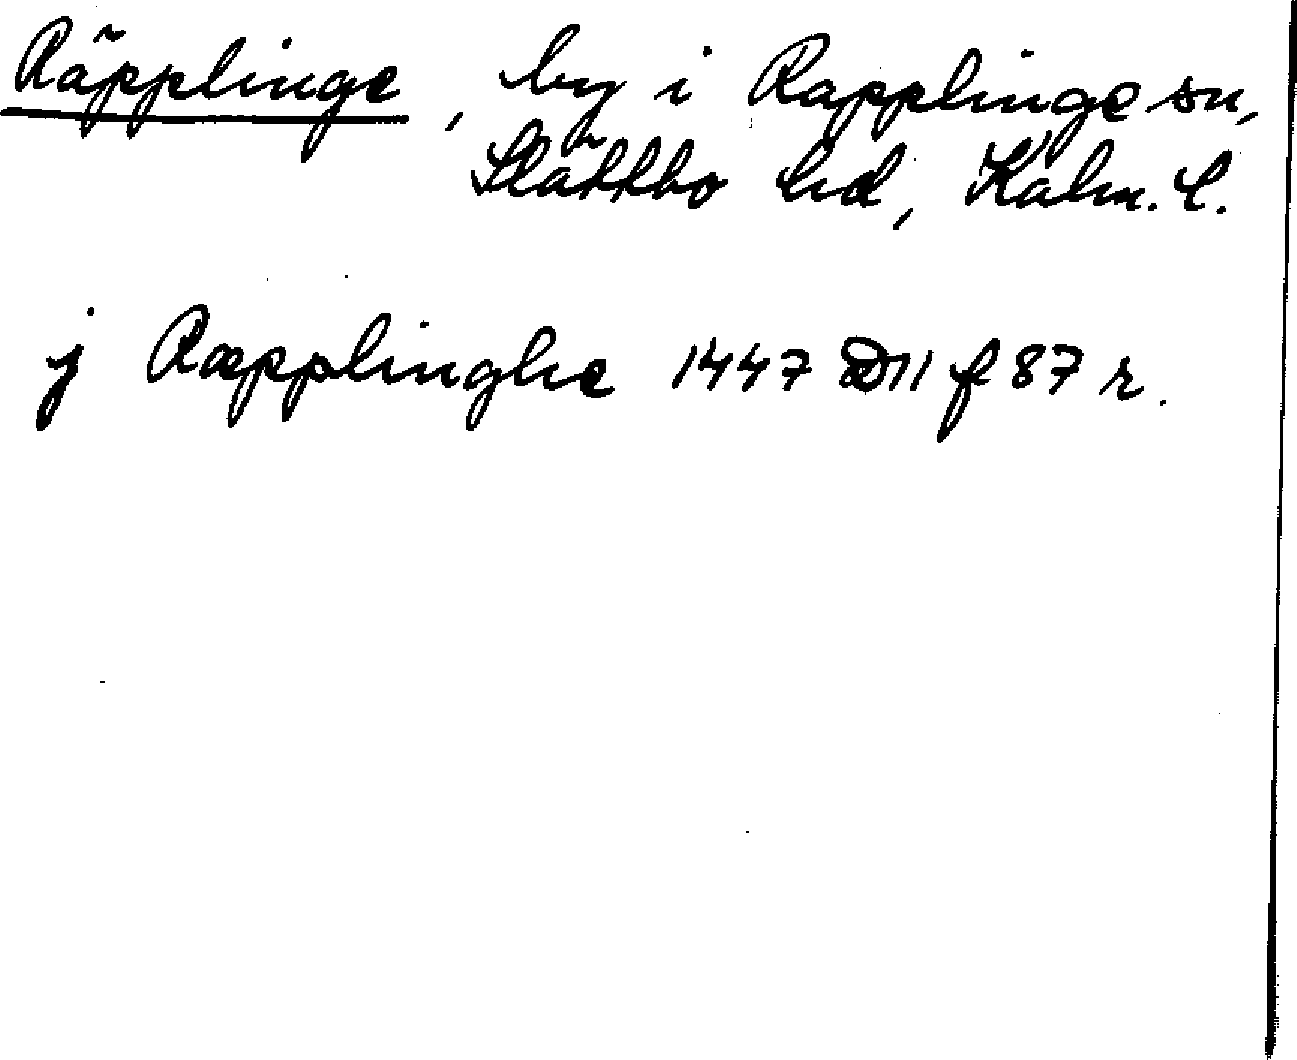 Räpplinge, by i Rapplinge sn,
Slättbo hd, Kalm. l.
j Ræpplinghe 1447 D11 f 87 r.